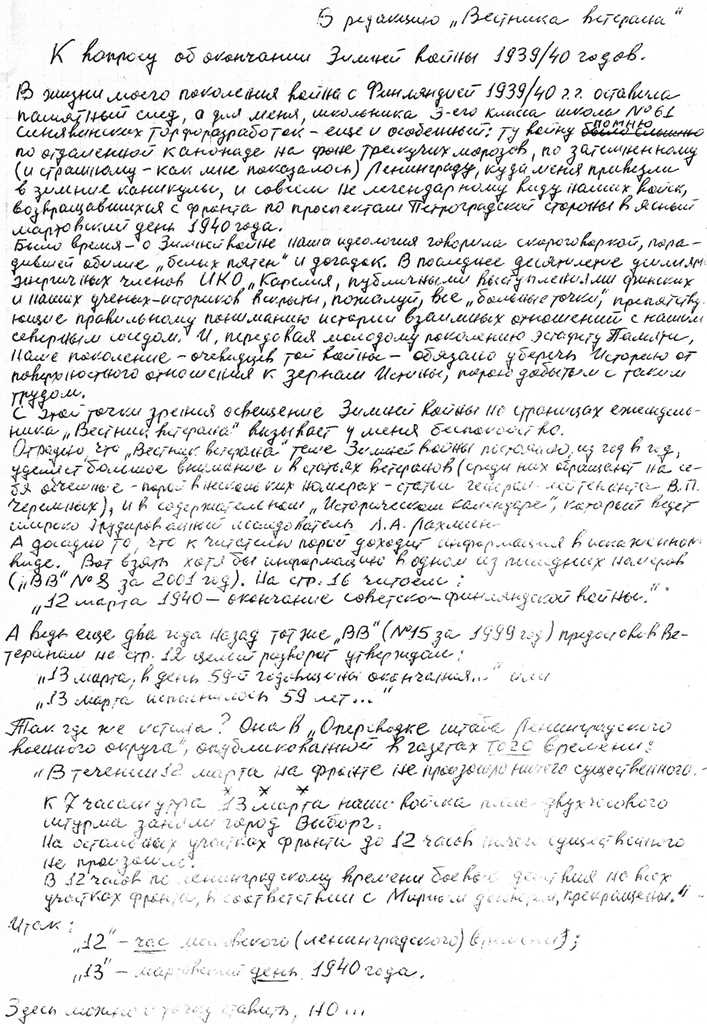 В редакцию „Вестника ветерана"
К вопросу об окончании Зимней войны 1939/40 годов.
В жизни моего поколения война с Финляндией 1939/40 г.г. оставила
памятный след, а для меня, школьника 3-его класса школы № 61
Синявинских торфоразработок – еще и особенный: ту войну помню
по отдаленной канонаде на фоне трескучих морозов, по затемненному
(и страшному – как мне показалось) Ленинграду, куда меня привезли
в зимние каникулы, и совсем не легендарному виду наших войск,
возвращавшихся с фронта по проспектам Петроградской стороны в ясный
мартовский день 1940 года.
Было время – о Зимней войне наша идеология говорила скороговоркой, поро-
дившей обилие „белых пятен" и догадок. В последнее десятилетие усилиями
энергичных членов ИКО „Карелия, публичными выступлениями финских
и наших ученых-историков вскрыты, пожалуй, все „больные точки", препятству-
ющие правильному пониманию истории взаимных отношений с нашим
северным соседом. И, передавая молодому поколению эстафету Памяти,
наше поколение – очевидцев той войны – обязано уберечь Историю от
поверхностного отношения к зернам Истины, порою добытым с таким
трудом.
С этой точки зрения освещение Зимней войны на страницах еженедель-
ника „Вестник ветерана" вызывает у меня беспокойство.
Отрадно, что „Вестник ветерана" теме Зимней войны постоянно, из год в год,
уделяет большое внимание и в статьях ветеранов (среди них обращают на се-
бя объемные – порой в нескольких номерах – статьи генерал-лейтенанта В.П.
Черемных), и в содержательном „Историческом календаре", который ведет
широко эрудированный исследователь Л.А. Лахмин
А досадно то, что к читателю порой доходит информация в искаженном
виде. Вот взять хотя бы информацию в одном из последних номеров
(„ВВ" № 8 за 2001 год). На стр. 16 читаем:
„12 марта 1940 – окончание советско-финляндской войны."
А ведь еще два года назад тот же „ВВ" (№ 15 за 1999 год) предоставив Ве-
теранам на стр. 12 целый разворот утверждал:
„13 марта, в день 59-й годовщины окончания..." или
„13 марта исполнилось 59 лет..."
Так где же истина? Она в „Оперсводке штаба Ленинградского
военного округа", опубликованной в газетах того времени:
„В течении 12 марта на фронте не произошло ничего существенного.
К 7 часам утра 13 марта наши войска после двухчасового
штурма заняли город Выборг.
На остальных участках фронта до 12 часов ничего существенного
не произошло.
В 12 часов по ленинградскому времени боевые действия на всех
участках фронта, в соответствии с Мирным договором, прекращены."
Итак:
„12" – час московского (ленинградского) времени);
„13" – мартовский день 1940 года.
Здесь можно и точку ставить, но...